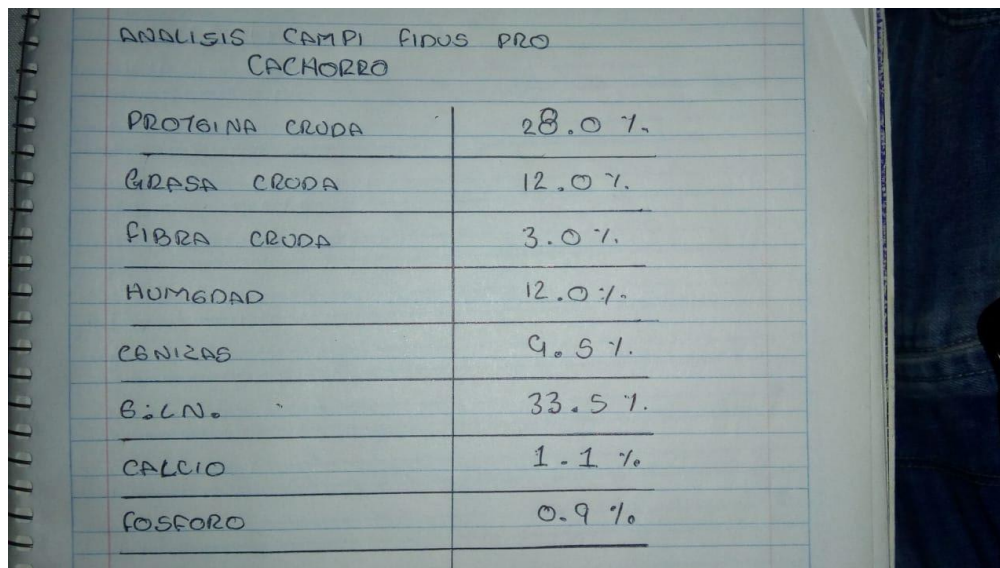 ANALISIS CAMPI FIDUS PRO
CACHORRO
PROTEINA CRUDA 28.0 %.
GRASA CRUDA 12.0 %.
FIBRA CRUDA 3.0 %.
HUMEDAD 12.0 %.
CENIZAS 9.5 %.
E.L.N. 33.5 %.
CALCIO 1.1 %
FOSFORO 0.9 %